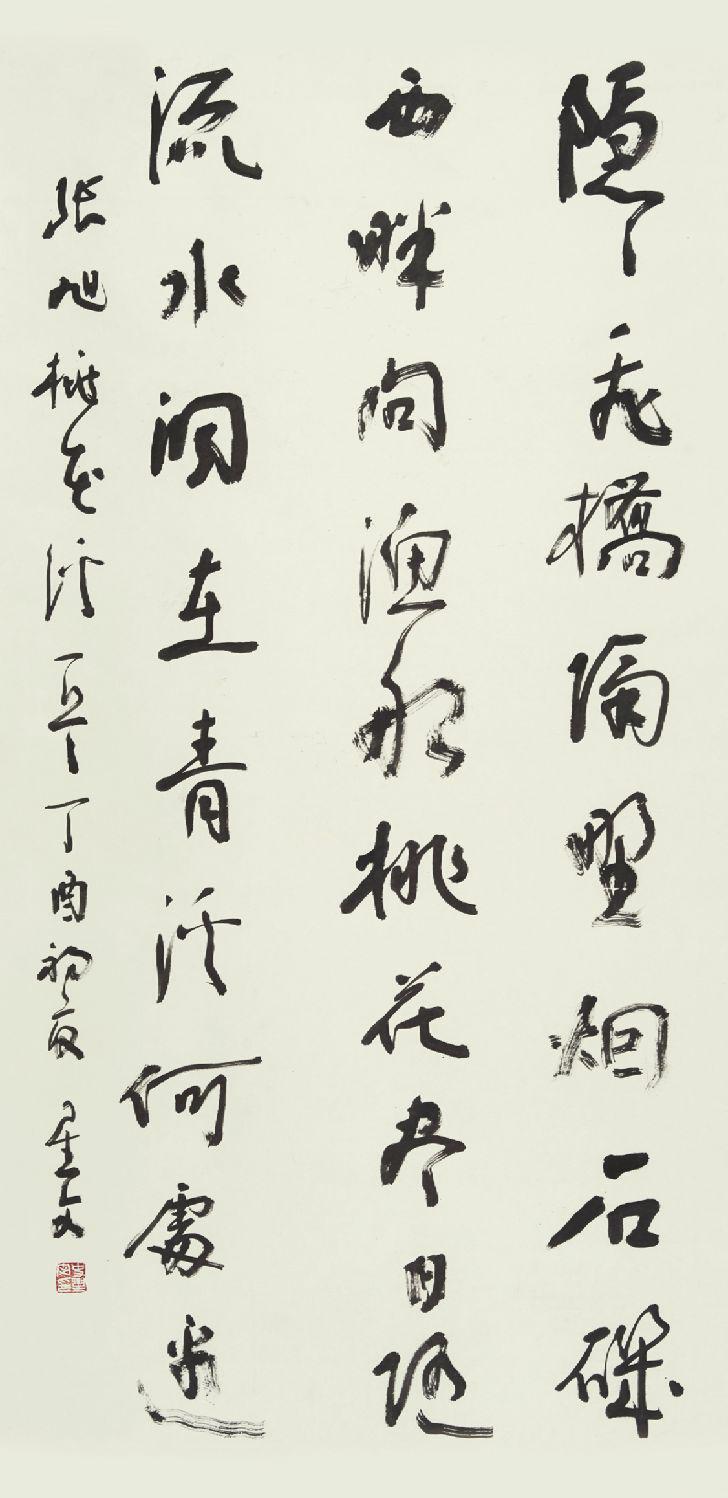 隱〻飛橋隔野烟石磯
西畔問漁船桃花尽日随
流水洞在青溪何處边
張旭桃花溪一首丁酉初夏星文